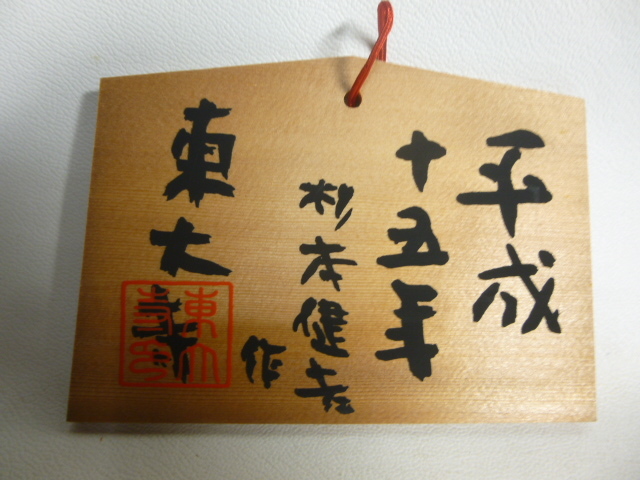 平成
十五年
杉本健吉
作
東大寺